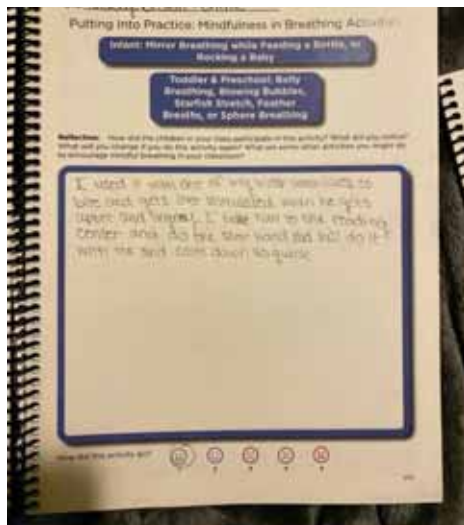 Putting Into Practice: Mindfulness in Breathing Activities
Infant: Mirror Breathing while Feeding a Bottle, or
Rocking a Baby
Toddler & Preschool: Belly
Breathing, Blowing Bubbles,
Starfish Stretch, Feather
Breaths, or Sphere Breathing
Reflection: How did the children in your class participate in this activity? What did you notice?
What will you change if you do this activity again? What are some other activities you might do
to encourage mindful breathing in your classroom?
I used it with one of my kids who likes to
bite and gets over stimulated when he gets
upset and I take him to the reading
center and do the star hand and he'll do it
with me and calm down
How did this activity go?
1 2 3 4 5